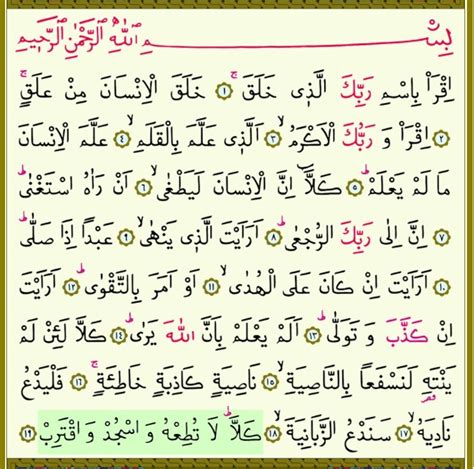 بِسْمِ اللهِ الرَّحْمٰنِ الرَّحِيمِ
اِقْرَأْ بِاسْمِ رَبِّكَ الَّذ۪ي خَلَقَۚ ﴿١﴾ خَلَقَ الْاِنْسَانَ مِنْ عَلَقٍۚ
﴿٢﴾ اِقْرَأْ وَ رَبُّكَ الْاَكْرَمُۙ ﴿٣﴾ اَلَّذ۪ي عَلَّمَ بِالْقَلَمِۙ ﴿٤﴾ عَلَّمَ الْاِنْسَانَ
مَا لَمْ يَعْلَمْۜ ﴿٥﴾ كَلَّٓا اِنَّ الْاِنْسَانَ لَيَطْغٰىۙ ﴿٦﴾ اَنْ رَاٰهُ اسْتَغْنٰىۜ
﴿٧﴾ اِنَّ اِلٰى رَبِّكَ الرُّجْعٰىۜ ﴿٨﴾ اَرَاَيْتَ الَّذ۪ي يَنْهٰىۙ ﴿٩﴾ عَبْدًا اِذَا صَلّٰىۜ
﴿١٠﴾ اَرَاَيْتَ اِنْ كَانَ عَلَى الْهُدٰىۙ ﴿١١﴾ اَوْ اَمَرَ بِالتَّقْوٰىۜ ﴿١٢﴾ اَرَاَيْتَ
اِنْ كَذَّبَ وَ تَوَلّٰىۜ ﴿١٣﴾ اَلَمْ يَعْلَمْ بِاَنَّ اللهَ يَرٰىۜ ﴿١٤﴾ كَلَّا لَئِنْ لَمْ
يَنْتَهِ لَنَسْفَعًا بِالنَّاصِيَةِۙ ﴿١٥﴾ نَاصِيَةٍ كَاذِبَةٍ خَاطِئَةٍۚ ﴿١٦﴾ فَلْيَدْعُ
نَادِيَهُۙ ﴿١٧﴾ سَنَدْعُ الزَّبَانِيَةَۙ ﴿١٨﴾ كَلَّاۜ لَا تُطِعْهُ وَ اسْجُدْ وَ اقْتَرِبْ ﴿١٩﴾